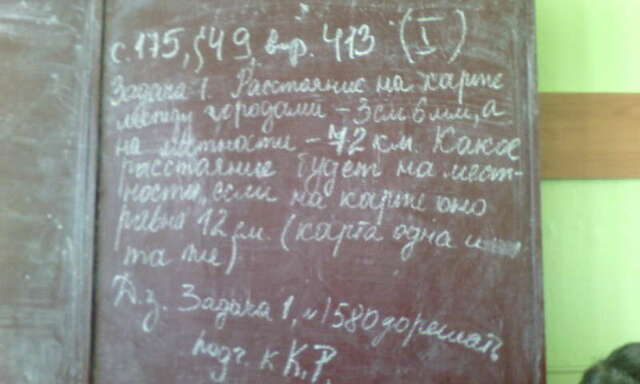 с. 175, §49, впр. 413 (I)
Задача 1. Расстояние на карте
между городами - 3см 6 мм, а
на местности - 72 км. Какое
расстояние будет на мест-
ности, если на карте оно
равно 12 см. (карта одна и
та же)
Д.з. Задача 1, №1580 дорешать
подг. к К.Р.